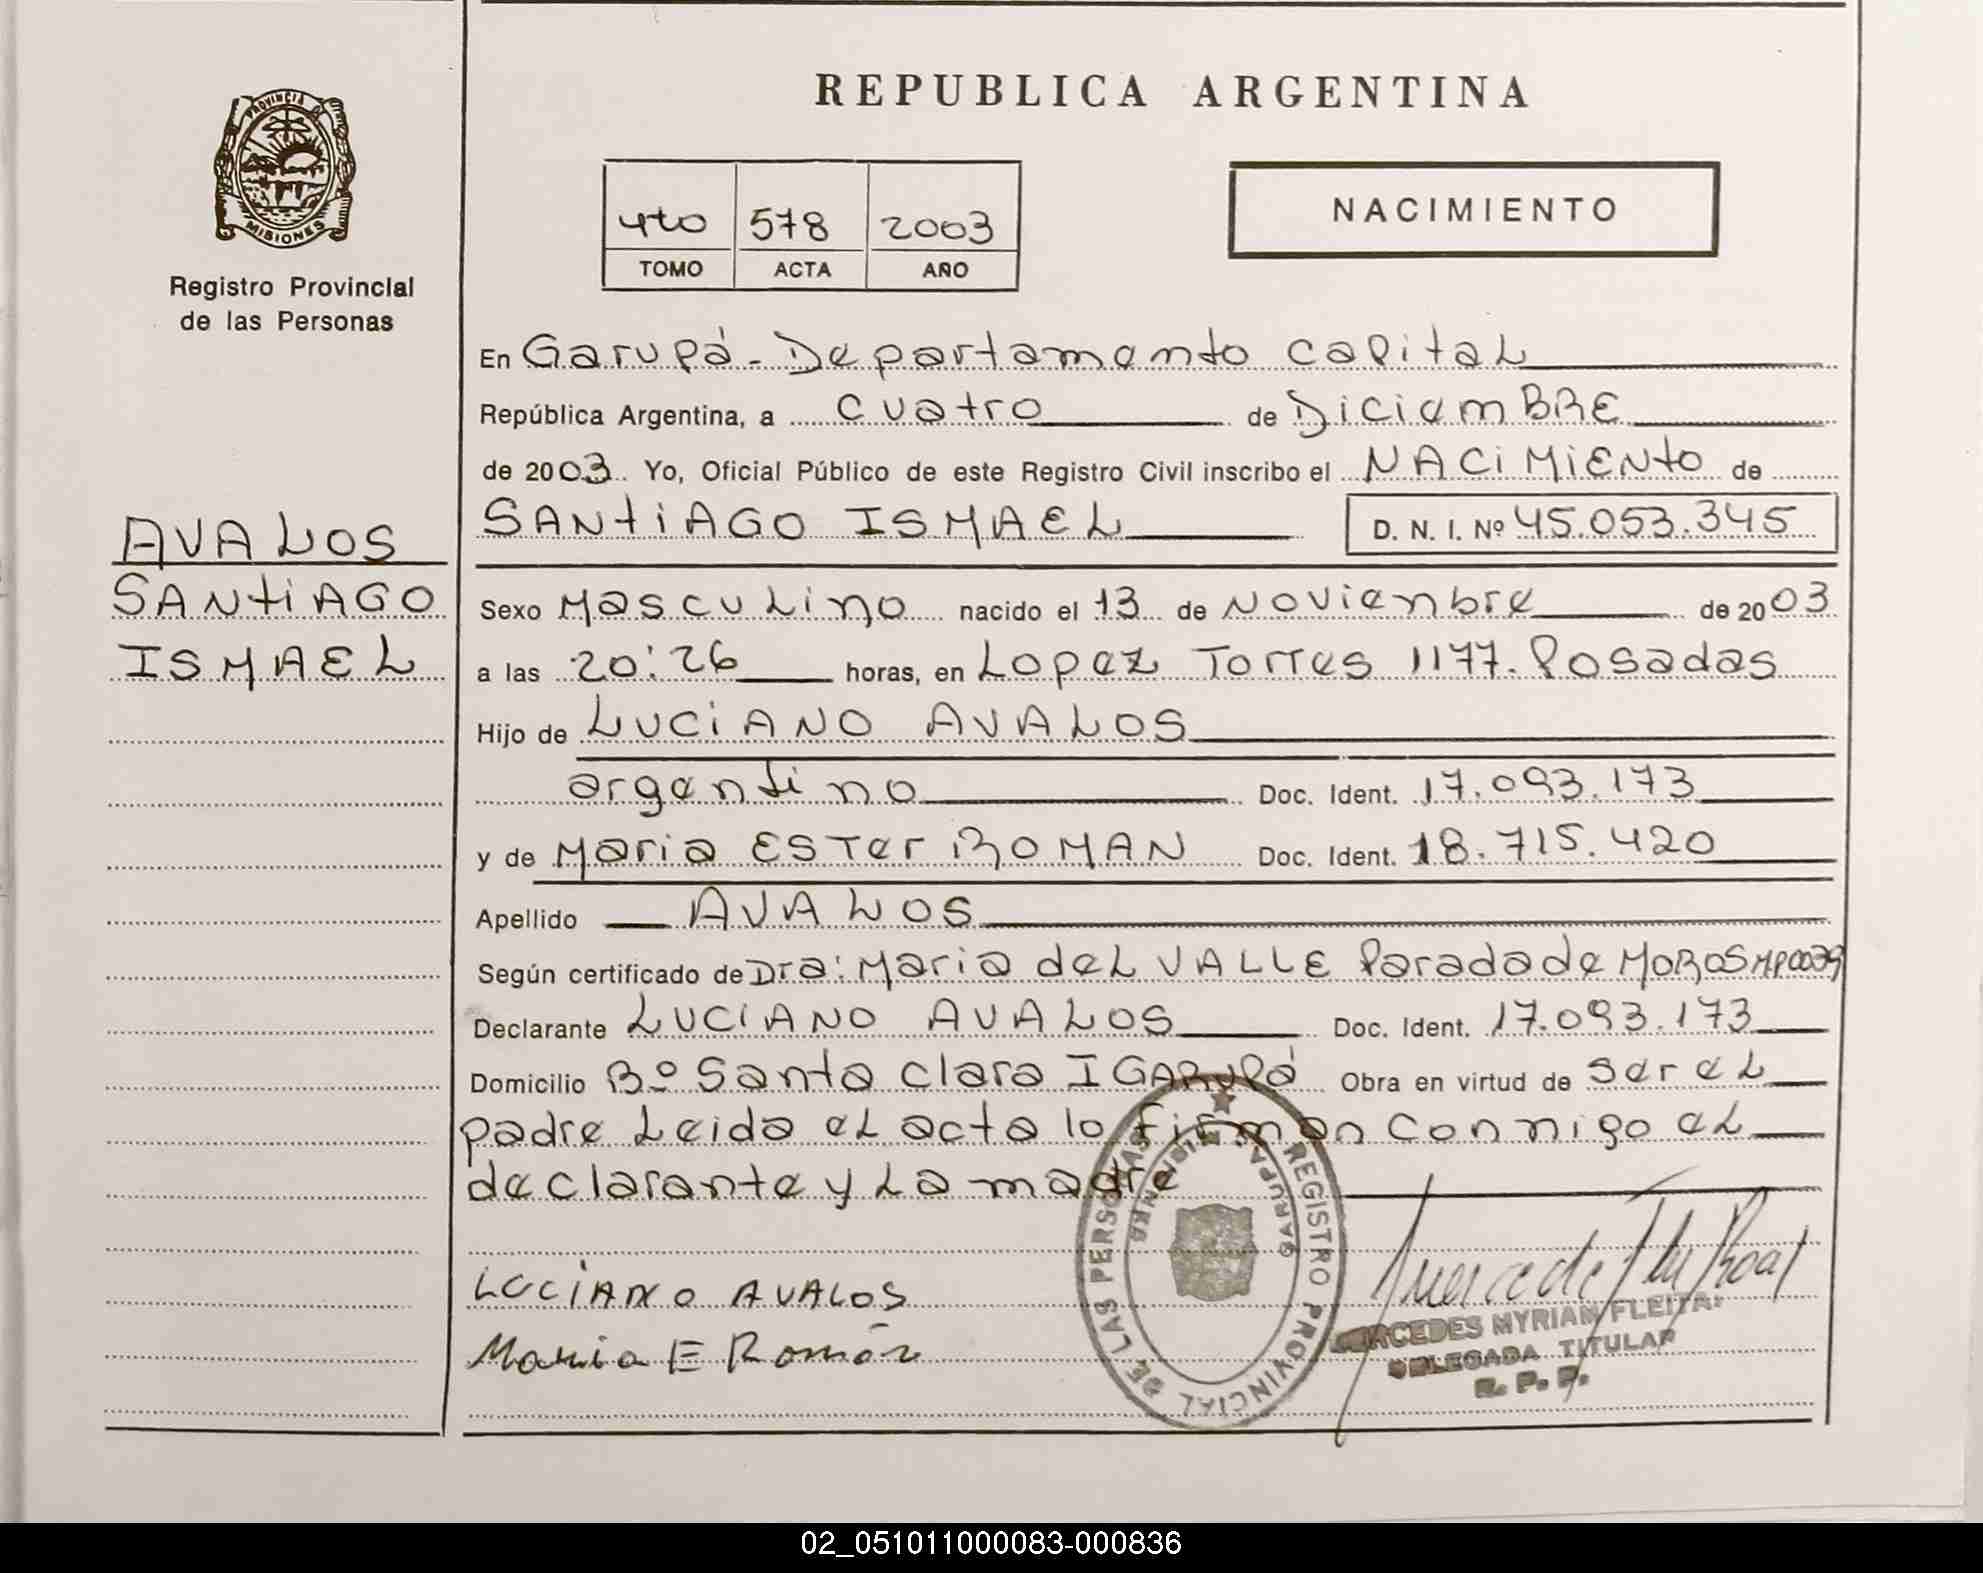 REPUBLICA ARGENTINA
PROVINCIA D MISIONES
Registro Provincial
de las Personas
4to 578 2003
TOMO ACTA AÑO
NACIMIENTO
AVALOS
SANtiAGO
ISMAEL
En Garupá - Departamento capital
República Argentina, a cuatro de DiciemBRE
de 2003 Yo, Oficial Público de este Registro Civil inscribo el NACiMiENto de
SANtiAGO ISMAEL D. N. I. Nº 45.053.345
Sexo Masculino nacido el 13 de Noviembre de 2003
a las 20:26 horas, en Lopez Torres 1177. Posadas
Hijo de LUCiANO AVALOS
argentino Doc. Ident. 17.093.173
y de Maria ESTer ROMAN Doc. Ident. 18.715.420
Apellido AVALOS
Según certificado de Dra: Maria del VALLE Parada de MOROS MP0039
Declarante LUCiANO AVALOS Doc. Ident. 17.093.173
Domicilio Bº Santa Clara I GARUPá Obra en virtud de ser el
padre Leida el acta lo firman conmigo el
declarante y La madre
LUCIANO AVALOS
Maria E Román
REGISTRO PROVINCIAL DE LAS PERSONAS
GARUPA
MERCEDES MYRIAN FLEITAS
DELEGADA TITULAR
R. P. P.
02_051011000083-000836